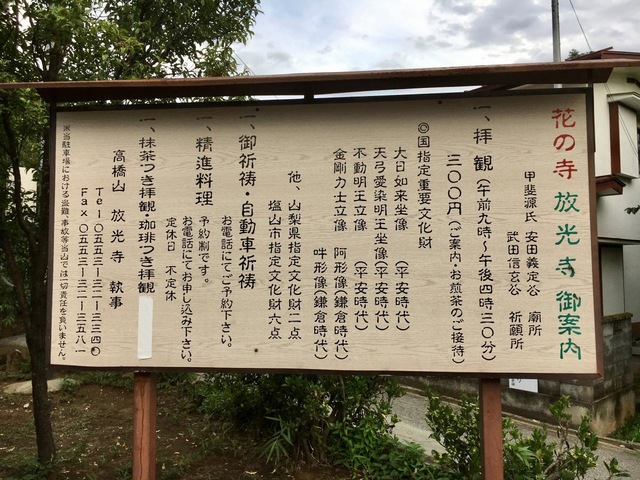 花の寺 放光寺 御案内
甲斐源氏 安田義定公 廟所
武田信玄公 祈願所
一、拝観(午前九時〜午後四時三〇分)
三〇〇円(ご案内・お煎茶のご接待)
◎国指定重要文化財
大日如来坐像 (平安時代)
天弓愛染明王坐像(平安時代)
不動明王立像 (平安時代)
金剛力士立像 阿形像(鎌倉時代)
吽形像(鎌倉時代)
他、山梨県指定文化財二点
塩山市指定文化財六点
一、御祈祷・自動車祈祷
お電話にてご予約下さい。
一、精進料理 予約制です。
お電話にてお申し込み下さい。
定休日 不定休
一、抹茶つき拝観・珈琲つき拝観
高橋山 放光寺 執事
Tel〇五五三-三二-三三四〇
Fax〇五五三-三二-三五八一
※当駐車場における盗難・事故等当山では一切責任を負いません。